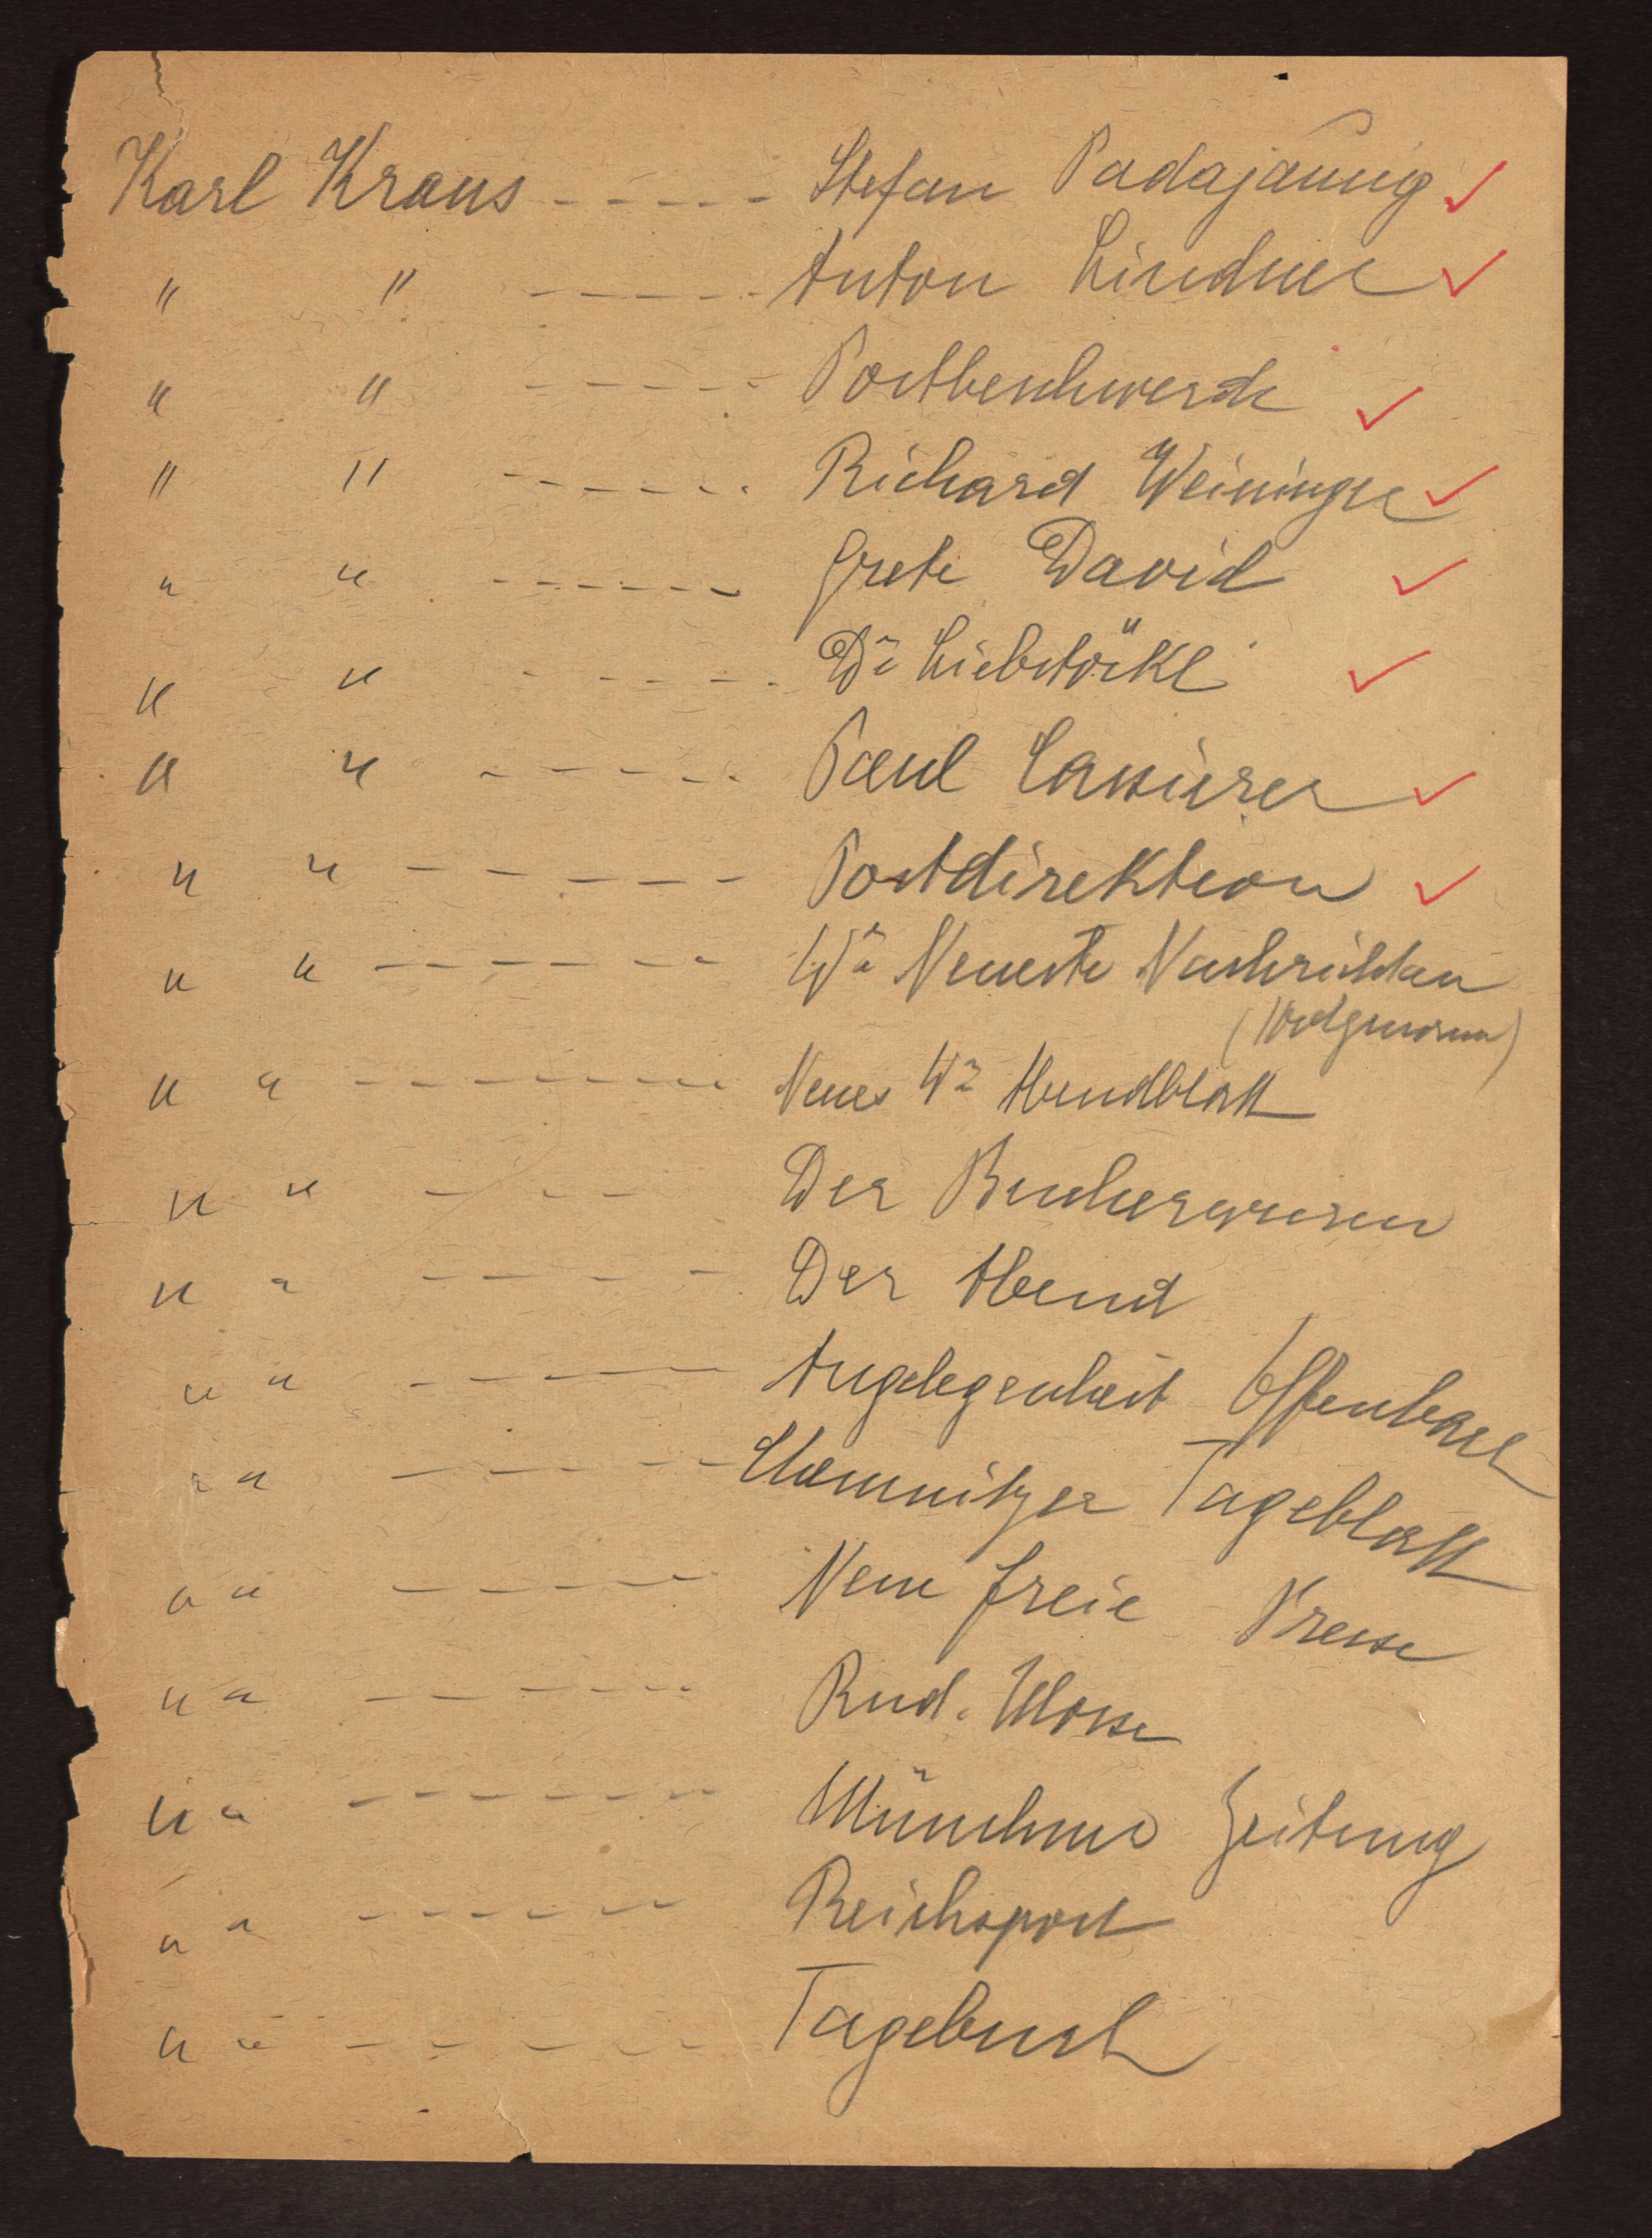 Karl Kraus ----- Stefan Padajaunig ✓
" " ----- Anton Lindner ✓
" " ----- Postbeschwerde ✓
" " ------ Richard Weininger ✓
" " ------ Grete David ✓
" " ------ Dr Liebstöckl ✓
" " ------ Paul Cassirer ✓
" " ------ Postdirektion ✓
" " ------- Wr Neueste Nachrichten
" " ------- Neues Wr Abendblatt
" " --- Der Bücherwurm
" " ---- Der Abend
" " ----- Angelegenheit Offenbach
" " ----- Chemnitzer Tageblatt
" " ----- Neue freie Presse
" " ------ Rud. Mosse
" " ------- Münchner Zeitung
" " ------ Reichspost
" " ------ Tagebuch